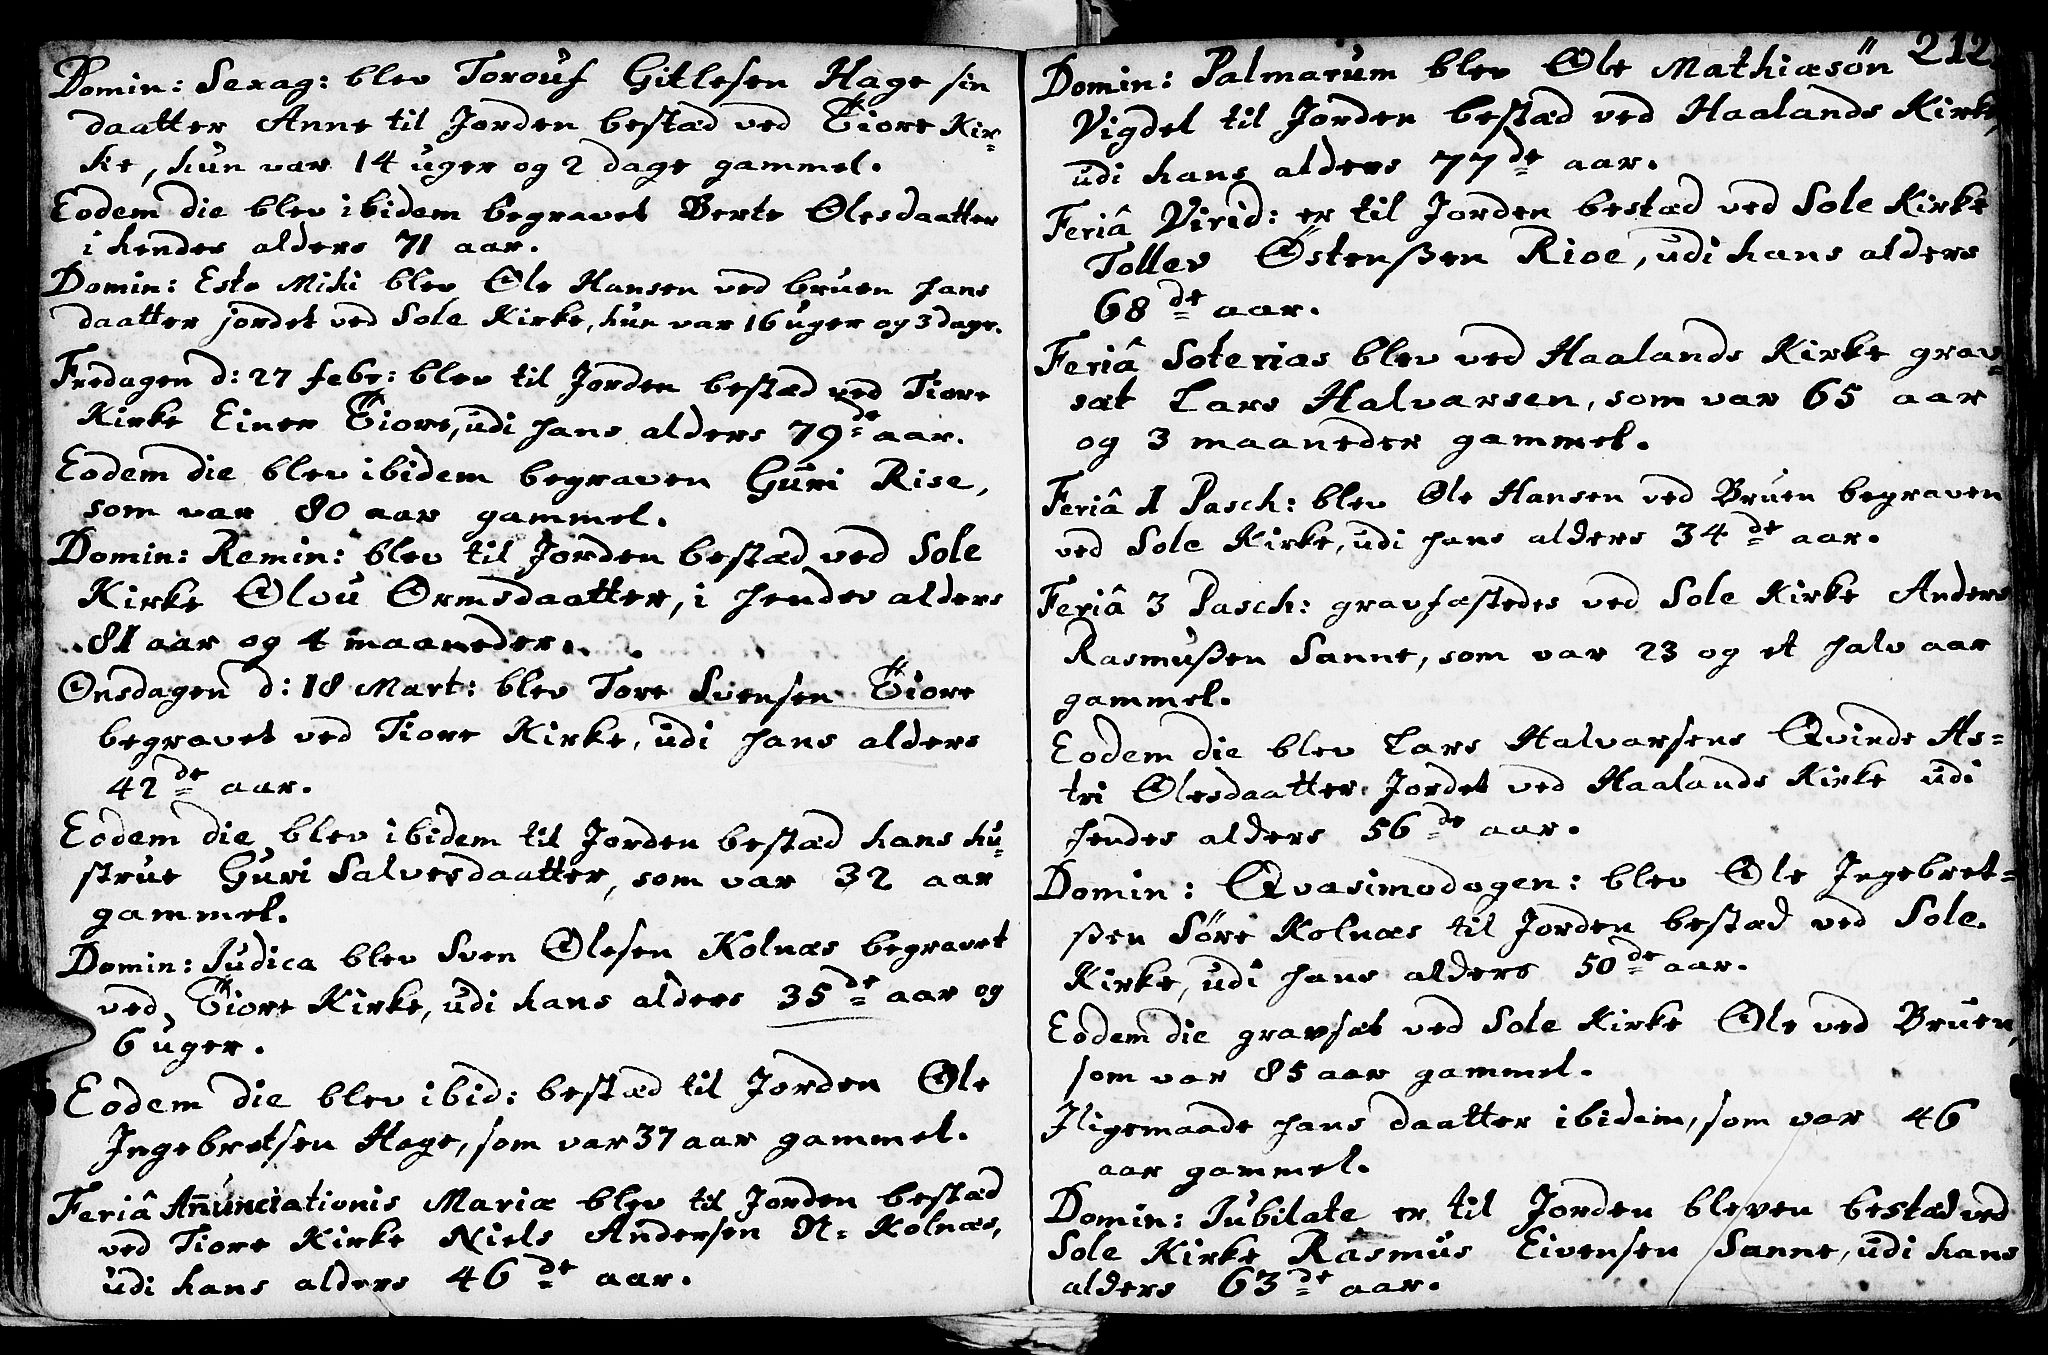 Domin: Sexag: blev Torouf Gitlesen Hage sin
daatter Anne til Jorden bestæd ved Tiore Kir=
ke, hun var 14 uger og 2 dage gammel.
Eodem die blev ibidem begravet Berte Olesdaatter
i hendes alders 71 aar.
Domin: Esto Mihi blev Ole Hansen ved bruen hans
daatter jordet ved Sole Kirke, hun var 16 uger og 3 dage.
Fredagen d: 27 febr: blev til Jorden bestæd ved Tiore
Kirke Einer Tiore, udi hans alders 79de aar.
Eodem die blev ibidem begraven Guri Rise,
som var 80 aar gammel.
Domin: Remin: blev til Jorden bestæd ved Sole
Kirke Olou Ormsdaatter, i hendes alders
81 aar og 4 maaneder.
Onsdagen d: 18 Mart: blev Tore Svensen Tiore
begravet ved Tiore Kirke, udi hans alders
42de aar.
Eodem die blev ibidem til Jorden bestæd hans hu=
strue Guri Salvesdaatter, som var 32 aar
gammel.
Domin: Judica blev Sven Olesen Kolnæs begravet
ved Tiore Kirke, udi hans alders 35de aar og
6 uger.
Eodem die blev ibid: bestæd til Jorden Ole
Ingebretsen Hage, som var 37 aar gammel.
Feriâ Añunciationis Mariæ blev til Jorden bestæd
ved Tiore Kirke Niels Andersen N: Kolnæs,
udi hans alders 46de aar.
212.
Domin: Palmarum blev Ole Mathiæsön
Vigdel til Jorden bestæd ved Haalands Kirke,
udi hans alders 77de aar.
Feriâ Virid: er til Jorden bestæd ved Sole Kirke
Tollev Østenßen Rioe, udi hans alders
68de aar.
Feriâ Soterias blev ved Haalands Kirke grav=
sat Lars Halvarsen, som var 65 aar
og 3 maaneder gammel.
Feriâ 1 Pasch: blev Ole Hansen ved Bruen begraven
ved Sole Kirke, udi hans alders 34de aar.
Feriâ 3 Pasch: gravfæstedes ved Sole Kirke Anders
Rasmußen Sanne, som var 23 og et halv aar
gammel.
Eodem die blev Lars Halvarsens Qvinde As=
tri Olesdaatter Jordet ved Haalands Kirke udi
hendes alders 56de aar.
Domin: Qvasimodogen: blev Ole Ingebret=
ßen Söre Kolnæs til Jorden bestæd ved Sole
Kirke, udi hans alders 50de aar.
Eodem die gravsat ved Sole Kirke Ole ved Bruen,
som var 85 aar gammel.
Iligemaade hans daatter ibidem, som var 46
aar gammel.
Domin: Jubilate er til Jorden bleven bestæd ved
Sole Kirke Rasmus Eivensen Sanne, udi hans
alders 63de aar.